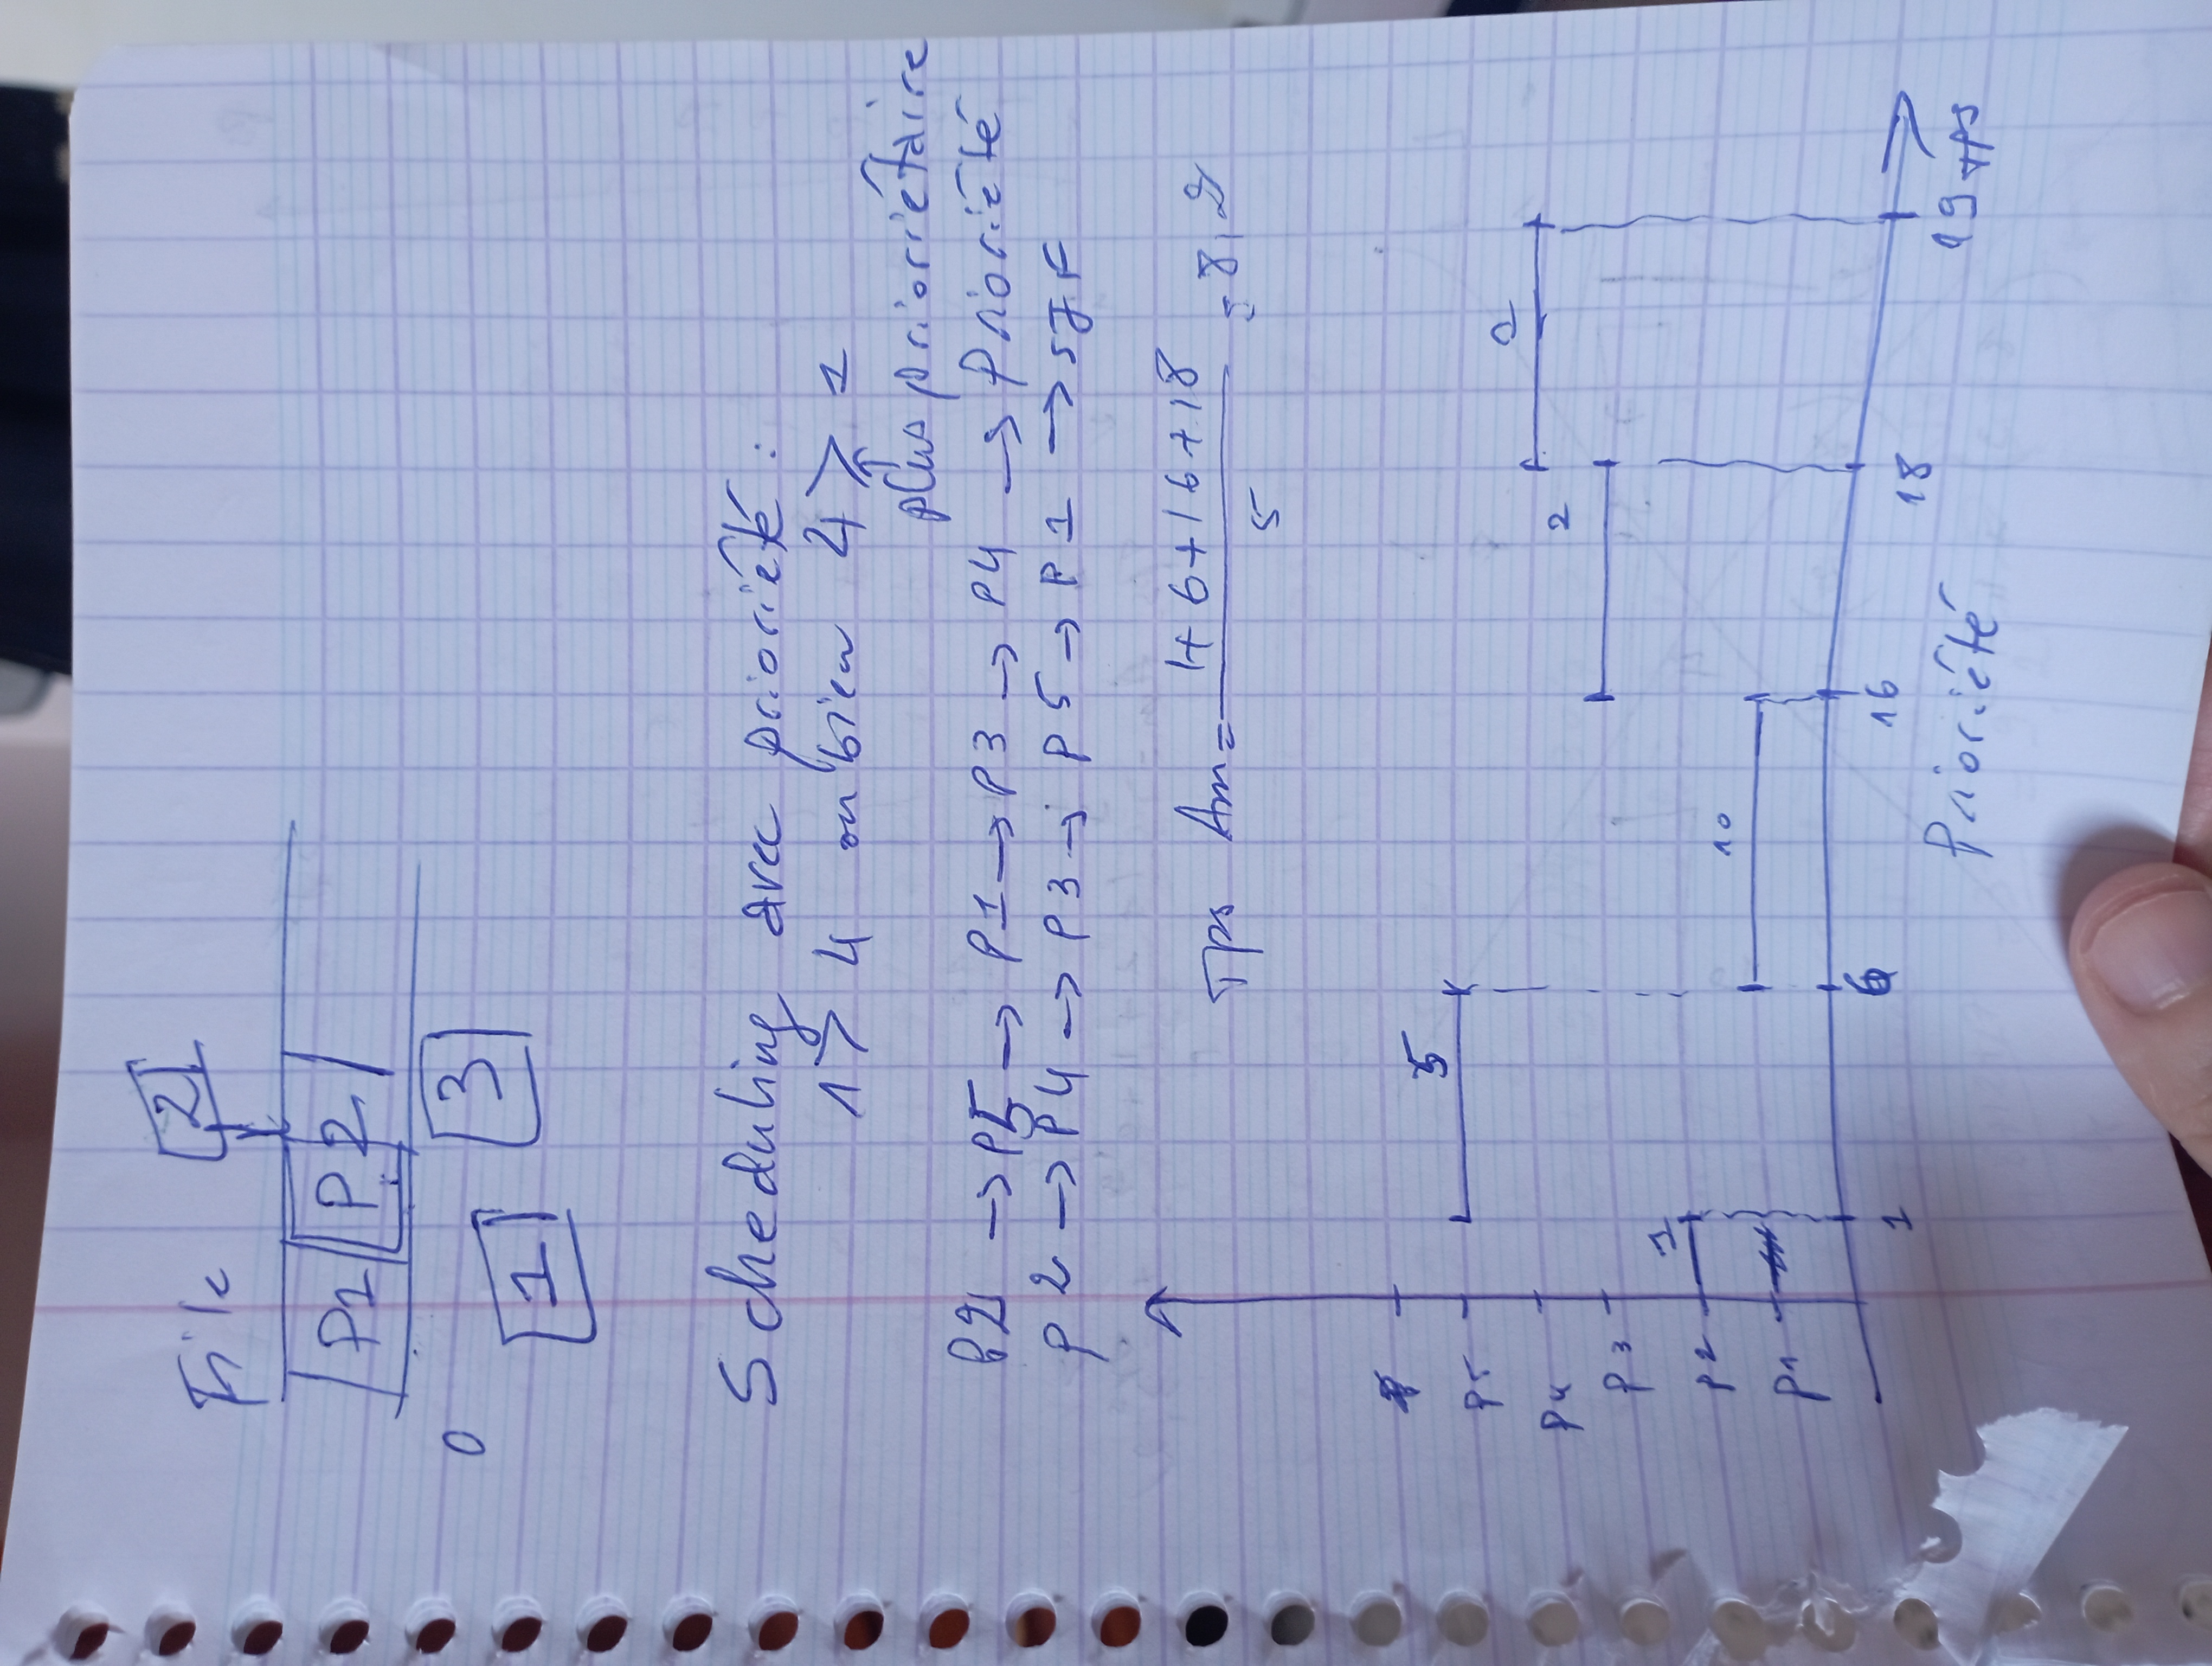 File
2
P1 P2
0
1
3
Scheduling avec prioriété :
1 > 4 ou bien 4 > 1
↑
plus prioriétaire
P2 → P5 → P1 → P3 → P4 → Prioriété
P2 → P4 → P3 → P5 → P1 → SJF
Tps Am = 1+6+16+18 / 5 = 8,2
P5 5
P4
P3 2
P2 1
P1 10
1 6 16 18 19 tps
Prioriété